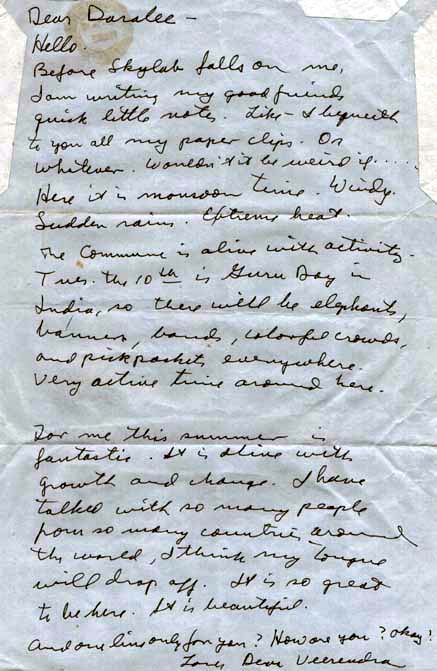 Dear Daralee –
Hello.
Before Skylab falls on me,
I am writing my good friends
quick little notes. Like – I bequeath
to you all my paper clips. Or
whatever. Wouldn't it be weird if.....
Here it is monsoon time. Windy.
Sudden rains. Extreme heat.
The Commune is alive with activity.
Tues. the 10th is Guru Day in
India, so there will be elephants,
banners, bands, colorful crowds,
and pickpockets everywhere.
Very active time around here.
For me this summer is
fantastic. It is alive with
growth and change. I have
talked with so many people
from so many countries around
the world, I think my tongue
will drop off. It is so great
to be here. It is beautiful.
And one line only for you? How are you? okay?
Love, Deva Veerendra